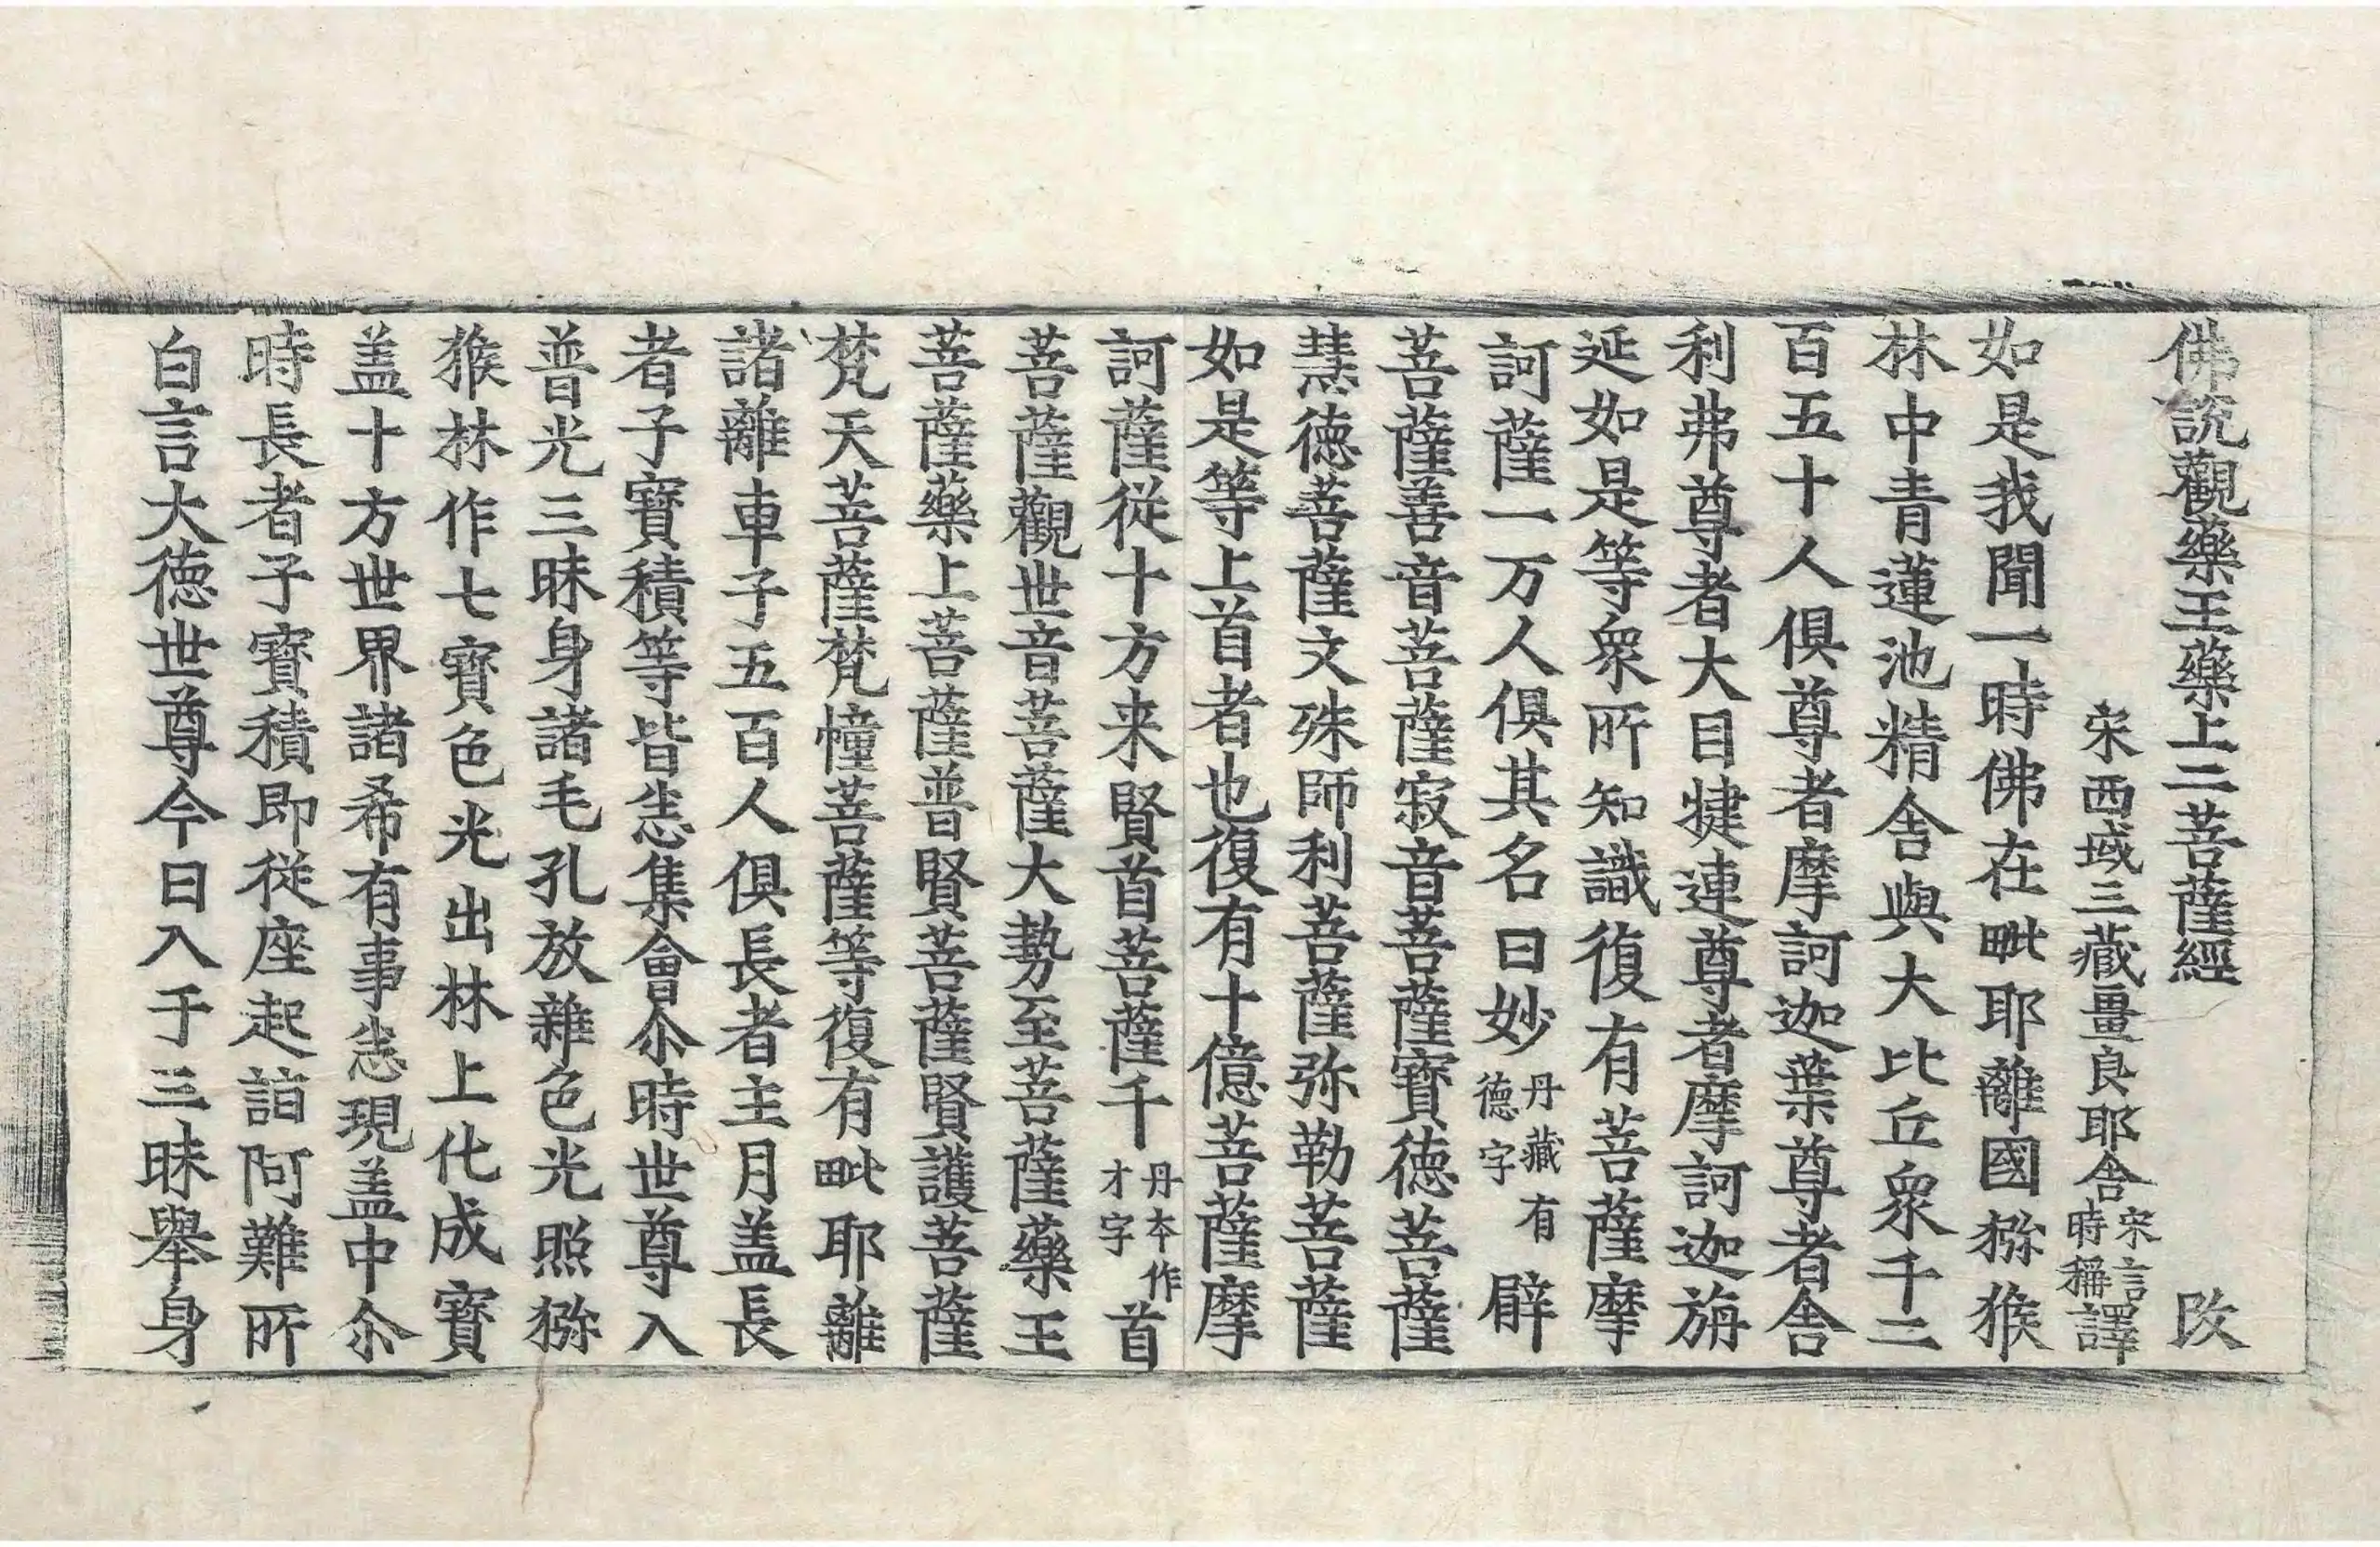 佛說觀藥王藥上二菩薩經　改
宋西域三藏畺良耶舍宋言時稱譯
如是我聞一時佛在毗耶離國獼猴
林中青蓮池精舍與大比丘衆千二
百五十人俱尊者摩訶迦葉尊者舍
利弗尊者大目揵連尊者摩訶迦旃
延如是等衆所知識復有菩薩摩
訶薩一万人俱其名曰妙丹藏有德字辟
菩薩善音菩薩寂音菩薩寶德菩薩
慧德菩薩文殊師利菩薩弥勒菩薩
如是等上首者也復有十億菩薩摩
訶薩從十方来賢首菩薩千丹本作才字首
菩薩觀世音菩薩大勢至菩薩藥王
菩薩藥上菩薩普賢菩薩賢護菩薩
梵天菩薩梵幢菩薩等復有毗耶離
諸離車子五百人俱長者主月盖長
者子寶積等皆悉集會尒時世尊入
普光三昧身諸毛孔放雜色光照獼
猴林作七寶色光出林上化成寶
盖十方世界諸希有事悉現盖中尒
時長者子寶積即從座起詣阿難所
白言大德世尊今日入于三昧舉身